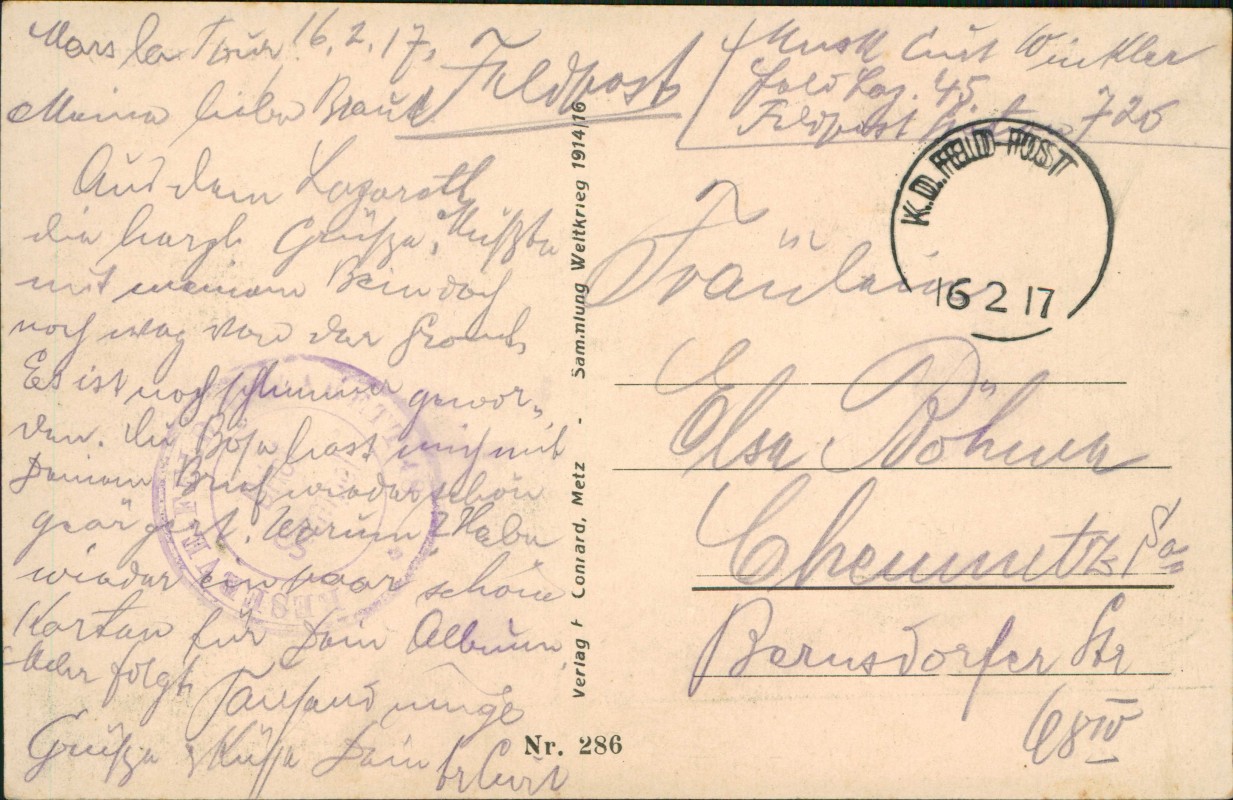 Mars la Tour, 16.2.17.
Feldpost
Musk Curt Winkler
Feld Laz. 45.
Feldpost 726
Meine liebe Braut
Aus dem Lazarett
die herzl Grüße,
mit meinem Bein doch
noch weg von der Front.
Es ist noch schlimmer gewor-
den. Du Böse hast mich mit
Deinem Brief wieder schön
geärgert. Warum? Habe
wieder ein paar schöne
Karten für Dein Album,
Mehr folgt
Tausend innige
Grüße & Küsse Dein Curt
K.D. FELD-POST
16 2 17
Fräulein
Elsa Böhme
Chemnitz Sa
Bernsdorfer Str
68 IV
Verlag F Conrard, Metz - Sammlung Weltkrieg 1914/16
Nr. 286